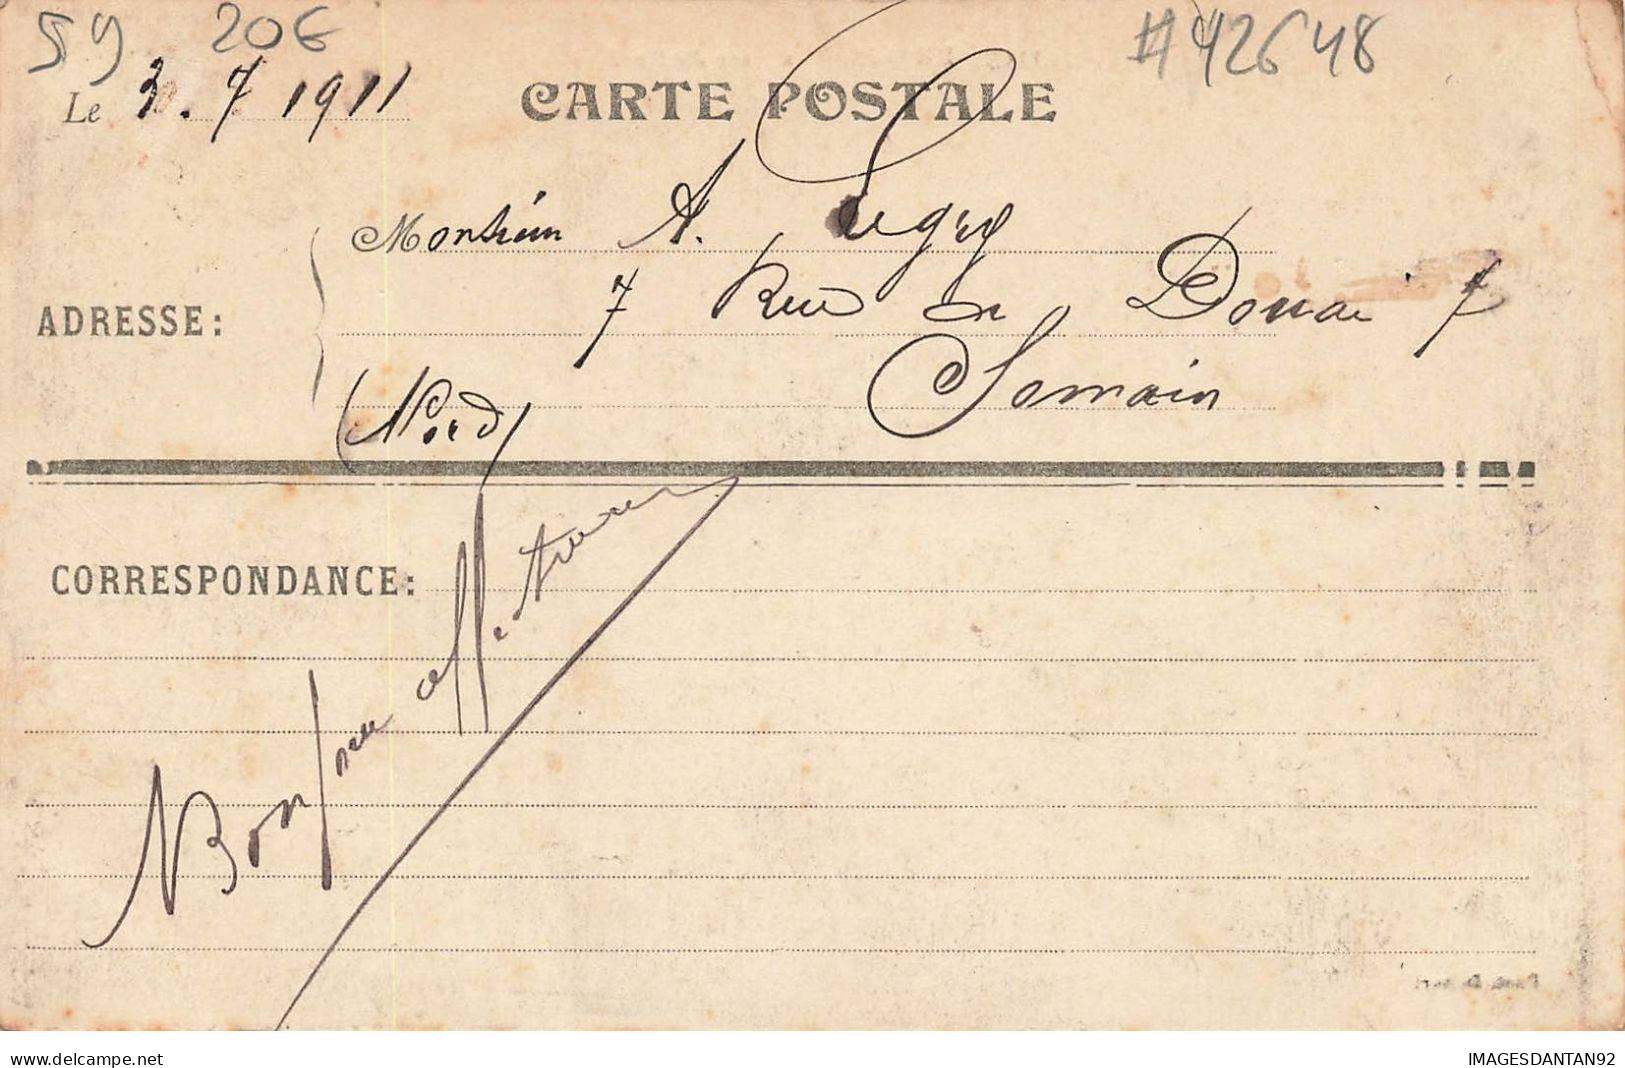 59 20€ #42648
Le 30.7 1911
CARTE POSTALE
Monsieur A. Legry
ADRESSE:
7 Rue de Douai 7
Somain
(Nord)
CORRESPONDANCE:
Bonjour aff.
www.delcampe.net
IMAGESDANTAN92